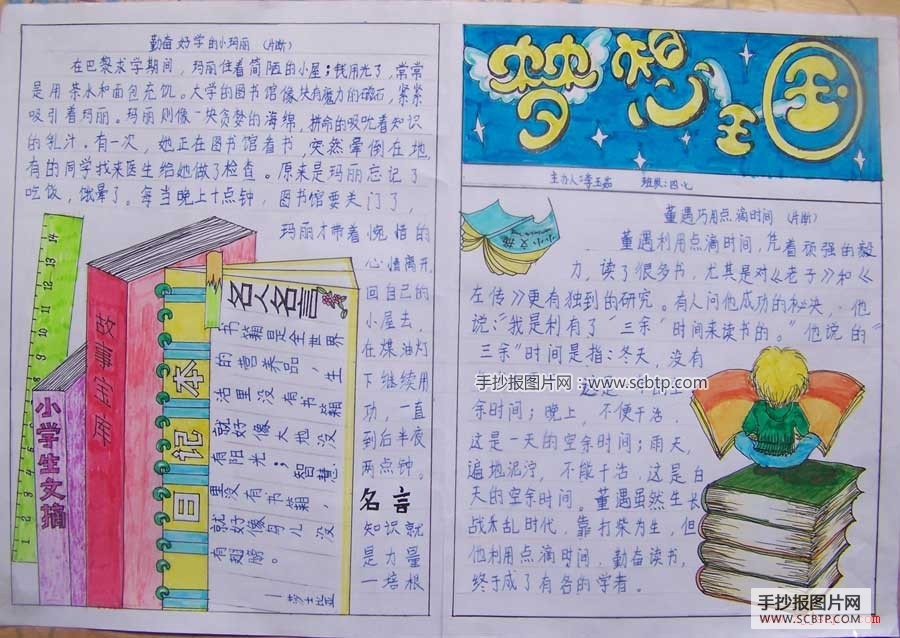 勤奋好学的小玛丽 (片断)
在巴黎求学期间，玛丽住着简陋的小屋；钱用光了，常常
是用茶水和面包充饥。大学的图书馆像块有魔力的磁石，紧紧
吸引着玛丽。玛丽则像一块贪婪的海绵，拼命的吸吮着知识
的乳汁。有一次，她正在图书馆看书，突然晕倒在地，
有的同学找来医生给她做了检查。原来是玛丽忘记了
吃饭，饿晕了。每当晚上十点钟，图书馆要关门了，
玛丽才带着惋惜的
心情离开，
回自己的
小屋去，
在煤油灯
下继续用
功，一直
到后半夜
两点钟。
名言
知识就
是力量
一培根
小学生文摘
故事宝库
日记本
名人名言
书籍是全世界
的营养品，生
活里没有书籍
就好像大地没
有阳光；智慧
里没有书籍，
就好像鸟儿没
有翅膀。
—莎士比亚
梦想王国
主办人:李玉茹 班级:四.七
小小文摘
董遇巧用点滴时间 (片断)
董遇利用点滴时间，凭着顽强的毅
力，读了很多书，尤其是对《老子》和《
左传》更有独到的研究。有人问他成功的秘决，他
说:“我是利有了“三余”时间来读书的。”他说的“
三余”时间是指:冬天，没有
手抄报图片网：www.scbtp.com
余时间；晚上，不便干活，
这是一天的空余时间；雨天，
遍地泥泞，不能干活，这是白
天的空余时间。董遇虽然生长
战未乱时代，靠打柴为生，但
他利用点滴时间，勤奋读书，
终于成了有名的学者。
手抄报图片网
WWW.SCBTP.COM